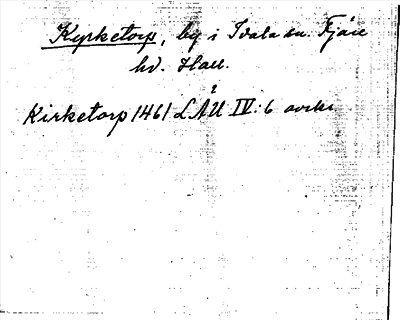 Kyrketorp, by i Idala sn. Fjäre
hd. Hall.
Kirketorp 1461 LAU IV: 6 avskr